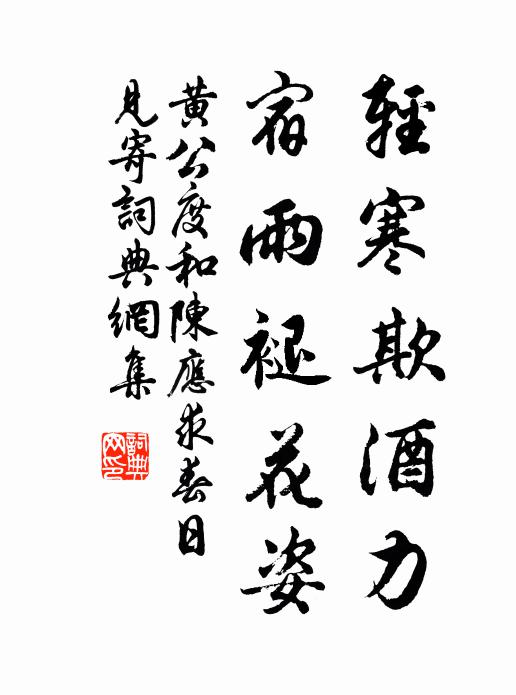 輕寒欺酒力
宿雨褪花姿
黃公度和陳應求春日
見寄詞典網集
詞典
网印